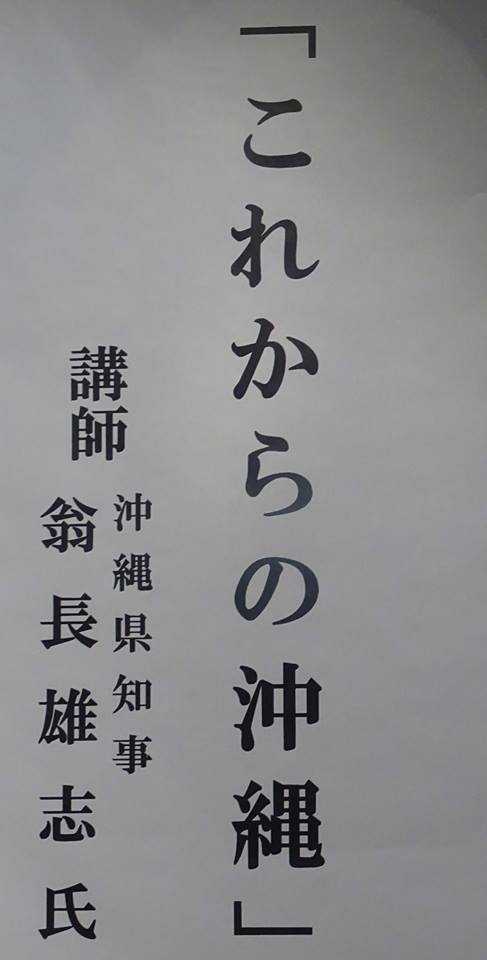 「これからの沖縄」
講師
沖縄県知事
翁長雄志氏